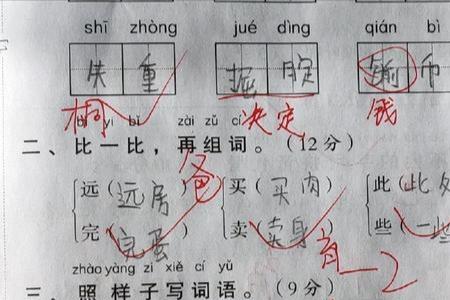 shī zhòng jué dìng qián bì
失 重 掘 腚 币
决定 钱
bǐ yi bǐ zài zǔ cí
二、比一比，再组词。（12分）
爸
远（远房） 买（买肉） 此（此
完（完蛋） 卖（卖身） 些（一些
-2
zhào yàng zi xiě cí yǔ
三、照样子写词语。（9分）